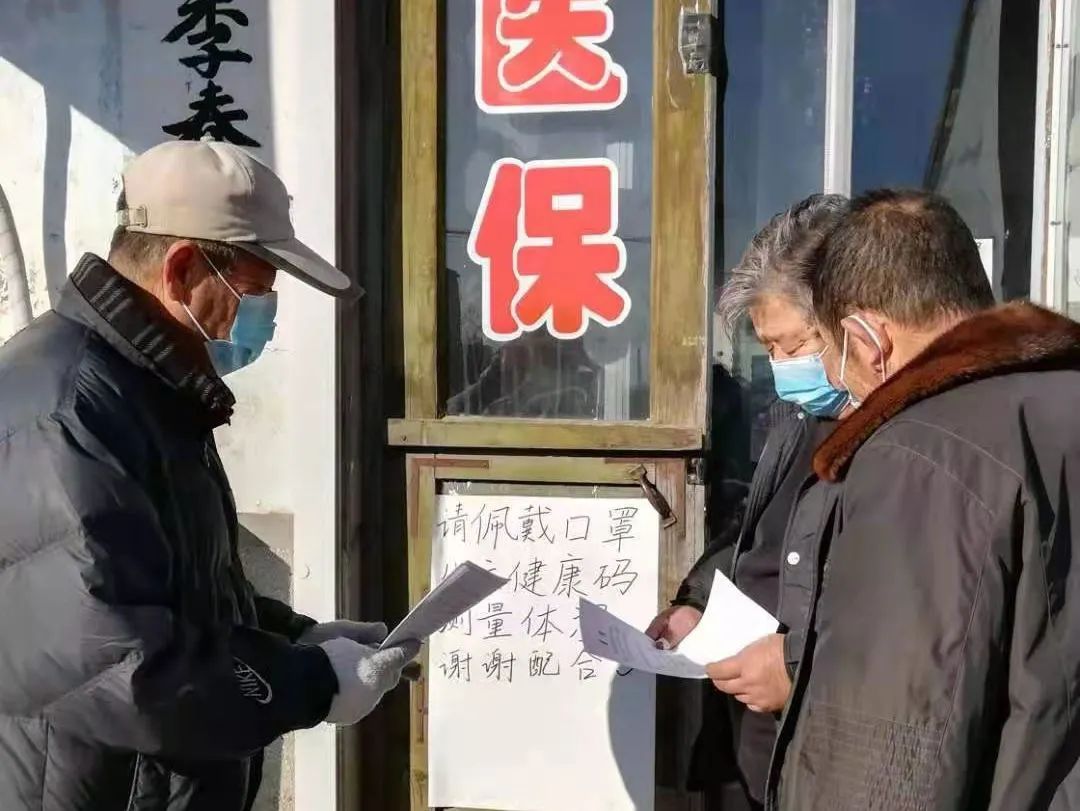 李春
医
保
请佩戴口罩
健康码
测量体
谢谢配合
NIKE